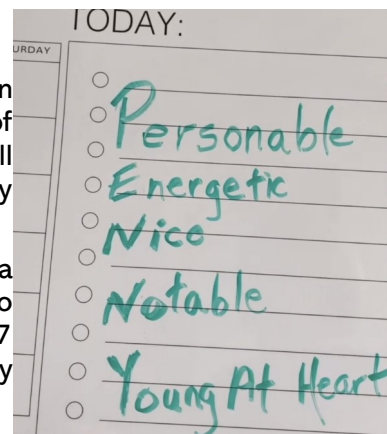 TODAY:
URDAY
n
of
ll
y
a
o
7
y
Personable
Energetic
Nice
Notable
Young At Heart